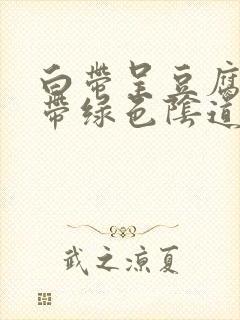 白带呈豆腐
带绿色阴道
武之凉夏